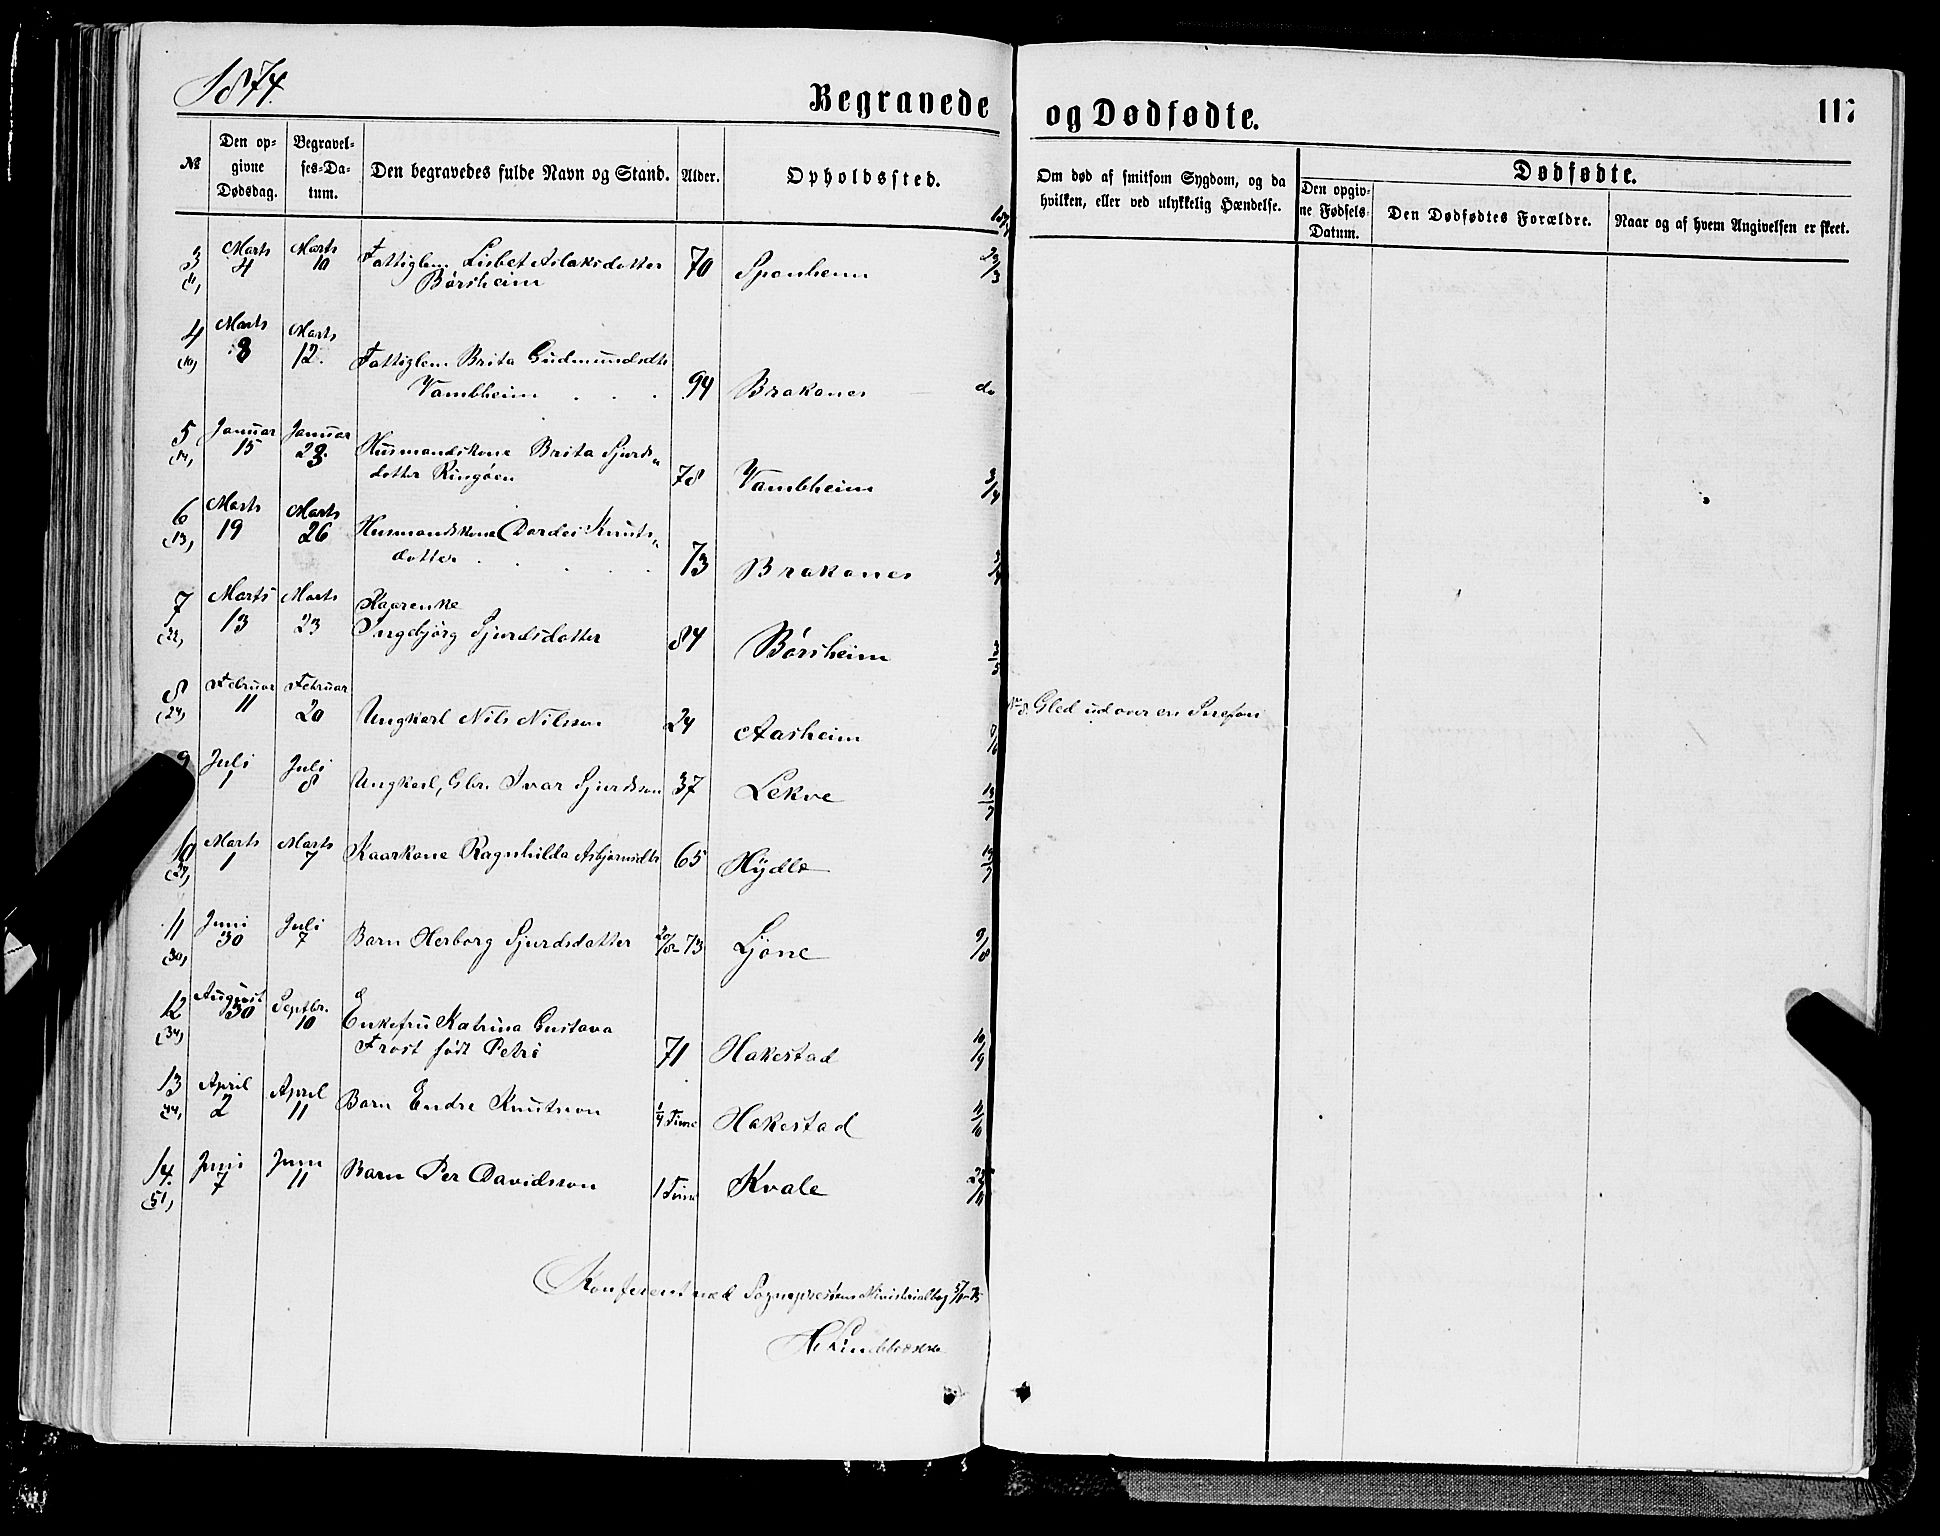 1874.
Begravede og Dødfødte.
117
№
Den opgivne Dødsdag.
Begravelses-Datum.
Den begravedes fulde Navn og Stand.
Alder.
Opholdssted.
Om død af smitsom Sygdom, og da hvilken, eller ved ulykkelig Hændelse.
Dødfødte.
Den opgivne Fødsels-Datum.
Den Dødfødtes Forældre.
Naar og af hvem Angivelsen er skeet.
3 Marts 4 Marts 10 Fattiglem Lisbet Aslaksdotter 70 Sponheim
Børsheim
4 (10) Marts 8 Marts 12. Fattiglem Brita Gudmundsdtr
Vambheim . . . 94 Brakanes do
5 Januar 15 Januar 23 Husmandskone Brita Sjurds„
dotter Ringøen 78 Vambheim 3/4
6 (13) Marts 19 Marts 26 Husmandskone Dordei Knuts„
dotter . . . . . 73 Brakanes
7 (22) Marts 13 Marts 23 Kaarenke
Ingebjørg Sjurdsdotter 84 Børsheim
8 (24) Februar 11 Februar 20 Ungkarl Nils Nilsson 24 Aasheim Gled ud over en
9 Juli 1 Juli 8 Ungkarl, Gbr. Ivar Sjurdsson 37 Lekve 19/7
10 (29) Marts 1 Marts 7 Kaarkone Ragnhilda Asbjørnsdtr 65 Hÿdle 19/7
11 (30) Juni 30 Juli 7 Barn Herborg Sjurdsdotter 20/8-73 Ljone 9/8
12 (34) August 30 Septbr. 10 Enkefru Katrina Gustava
Frost født Petri 71 Hakestad 10/9
13 (44) April 2 April 11 Barn Endre Knutson 1/4 Time Hakestad 4/10
14. (51) Juni 7 Juni 11 Barn Per Davidsson 1 Time Kvale 22/11
Konfereret med Sogneprestens Ministerialbog